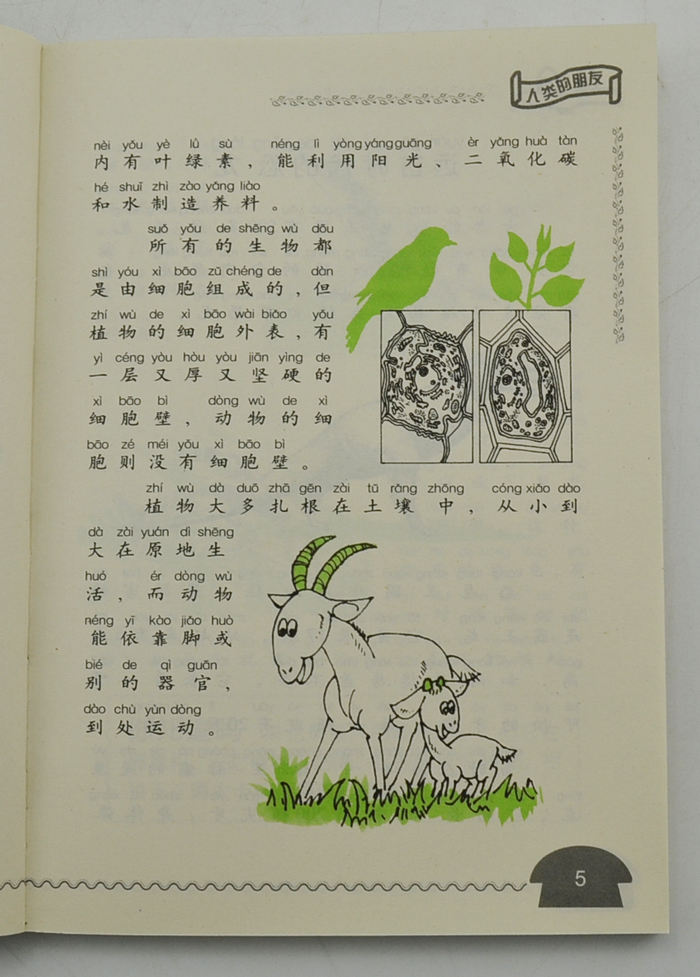 人类的朋友
nèi yǒu yè lǜ sù néng lì yòng yáng guāng èr yǎng huà tàn
内有叶绿素，能利用阳光、二氧化碳
hé shuǐ zhì zào yǎng liào
和水制造养料。
suǒ yǒu de shēng wù dōu
所有的生物都
shì yóu xì bāo zǔ chéng de dàn
是由细胞组成的，但
zhí wù de xì bāo wài biǎo yǒu
植物的细胞外表，有
yì céng yòu hòu yòu jiān yìng de
一层又厚又坚硬的
xì bāo bì dòng wù de xì
细胞壁，动物的细
bāo zé méi yǒu xì bāo bì
胞则没有细胞壁。
zhí wù dà duō zhā gēn zài tǔ rǎng zhōng cóng xiǎo dào
植物大多扎根在土壤中，从小到
dà zài yuán dì shēng
大在原地生
huó ér dòng wù
活，而动物
néng yī kào jiǎo huò
能依靠脚或
bié de qì guān
别的器官，
dào chù yùn dòng
到处运动。
5